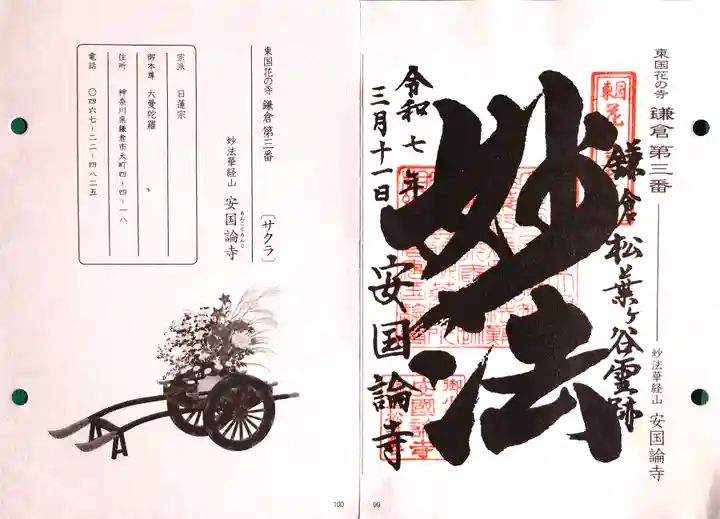 東国花の寺 鎌倉 第三番 妙法華経山 安国論寺
東国花
鎌倉松葉ヶ谷霊跡
妙法
令和七年
三月十一日
安国論寺
99
東国花の寺 鎌倉 第三番
〔サクラ〕
妙法華経山 安国論寺
あんこくろんじ
宗派 日蓮宗
御本尊 大曼陀羅
住所 神奈川県鎌倉市大町四-四-一八
電話 〇四六七-二二-四八二五
100